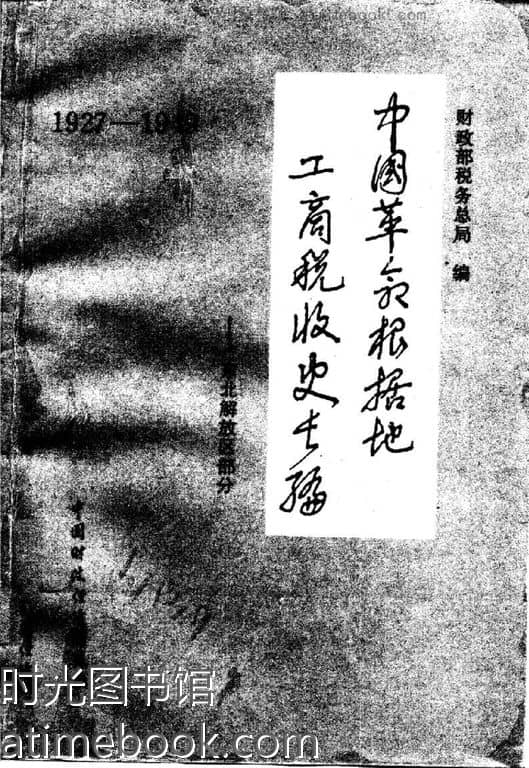 财政部税务总局 编
中國革命根据地
工商税收史长编
1927—19
北解放区部分
中国财政
时光图书馆
atimebook.com